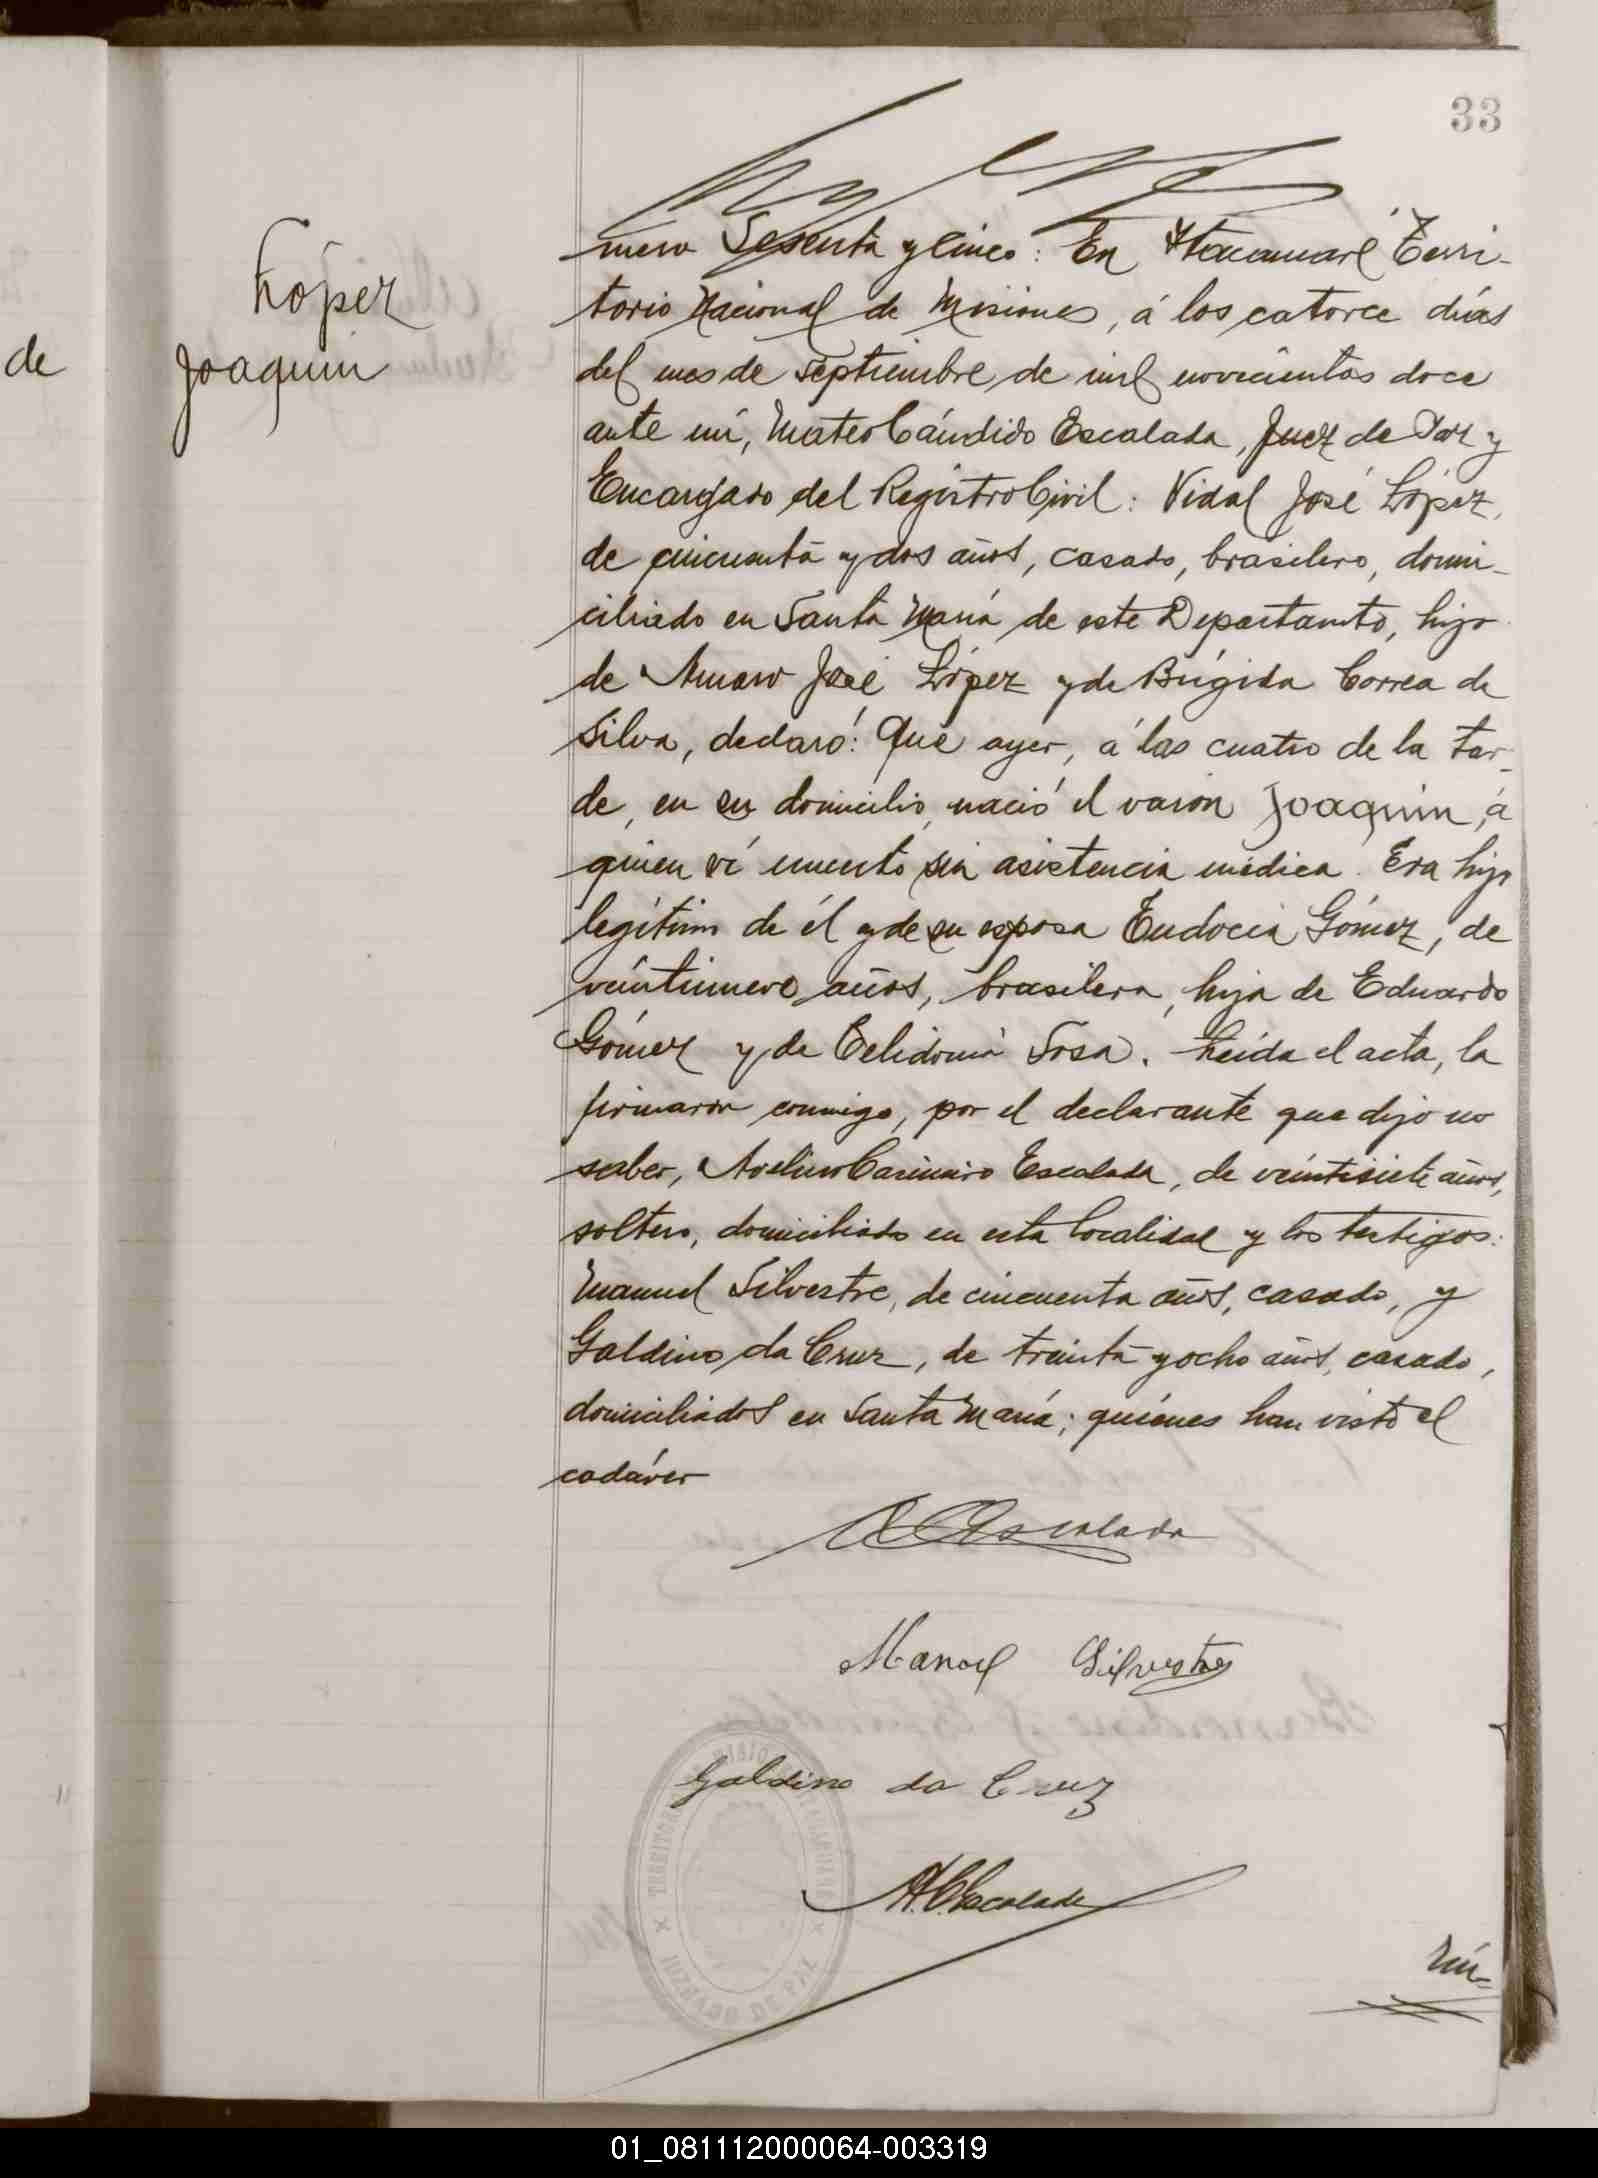 33
de
López
Joaquin
mero Sesenta y cinco: En Itacaruaré Terri-
torio Nacional de Misiones, á los catorce dias
del mes de septiembre de mil novecientos doce
ante mí, Mateo Cándido Escalada, Juez de Paz y
Encargado del Registro Civil: Vidal José López,
de cincuenta y dos años, casado, brasilero, domi-
ciliado en Santa María de este Departamto, hijo
de Amaro José López y de Brígida Correa de
Silva, declaró: Que ayer, á las cuatro de la tar-
de, en su domicilio, nació el varón Joaquin, á
quien ví muerto sin asistencia médica. Era hijo
legítimo de él y de su esposa Eudocia Gómez, de
veintinueve años, brasilera, hija de Eduardo
Gómez y de Celidonia Sosa. Leida el acta, la
firmaron conmigo, por el declarante que dijo no
saber, Avelino Casimiro Escalada, de veintisiete años,
soltero, domiciliado en esta localidad y los testigos:
Manuel Silvestre, de cincuenta años, casado, y
Galdino da Cruz, de treinta y ocho años, casado,
domiciliados en Santa María; quiénes han visto el
cadáver
Escalada
Manoel Silvestre
Galdino da Cruz
A. C. Escalada
JUZGADO DE PAZ
Nú-
01_081112000064-003319